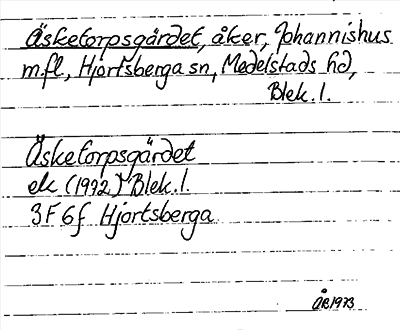 Äsketorpsgärdet, åker, Johannishus
m.fl, Hjortsberga sn, Medelstads hd,
Blek. l.
Äsketorpsgärdet
ek (1972) Blek. l.
3F6f Hjortsberga
ÅB 1973